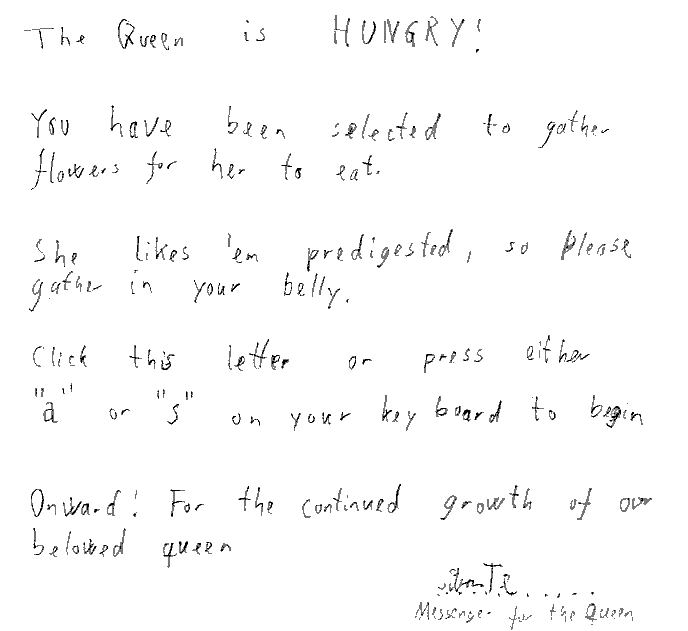 The Queen is HUNGRY!
You have been selected to gather
flowers for her to eat.
She likes 'em predigested, so please
gather in your belly.
Click this letter or press either
"a" or "s" on your keyboard to begin
Onward! For the continued growth of our
beloved queen
Messenger for the Queen